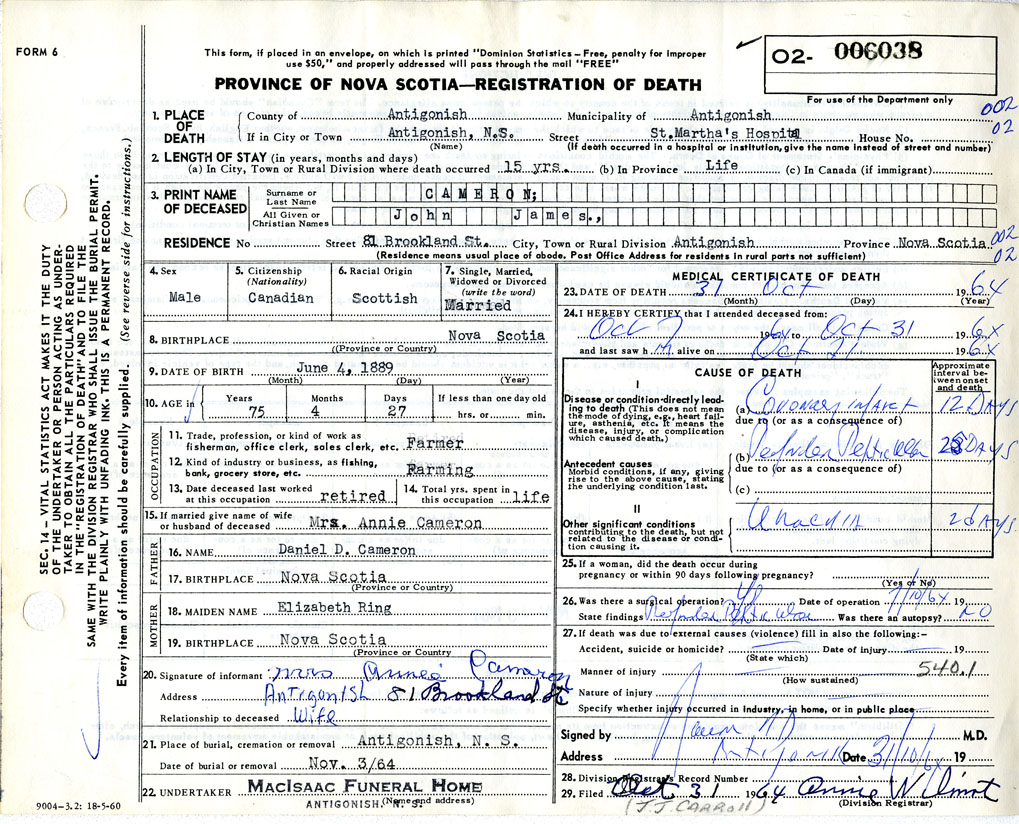 FORM 6
This form, if placed in an envelope, on which is printed "Dominion Statistics – Free, penalty for improper
use $50," and properly addressed will pass through the mail "FREE"
O2- 006038
PROVINCE OF NOVA SCOTIA—REGISTRATION OF DEATH
For use of the Department only
002
02
1. PLACE OF DEATH
County of Antigonish Municipality of Antigonish
If in City or Town Antigonish, N.S. Street St.Martha's Hospital House No.
(Name) (If death occurred in a hospital or institution, give the name instead of street and number)
2. LENGTH OF STAY (in years, months and days)
(a) In City, Town or Rural Division where death occurred 15 yrs. (b) In Province Life (c) In Canada (if immigrant)
3. PRINT NAME OF DECEASED
Surname or Last Name CAMERON;
All Given or Christian Names John James.,
RESIDENCE No Street 81 Brookland St. City, Town or Rural Division Antigonish Province Nova Scotia
002
02
(Residence means usual place of abode. Post Office Address for residents in rural parts not sufficient)
4. Sex
Male
5. Citizenship
(Nationality)
Canadian
6. Racial Origin
Scottish
7. Single, Married,
Widowed or Divorced
(write the word)
Married
8. BIRTHPLACE Nova Scotia
((Province or Country)
9. DATE OF BIRTH June 4, 1889
(Month) (Day) (Year)
10. AGE in
Years Months Days If less than one day old
75 4 27 hrs. or min.
OCCUPATION
11. Trade, profession, or kind of work as
fisherman, office clerk, sales clerk, etc. Farmer
12. Kind of industry or business, as fishing,
bank, grocery store, etc. Farming
13. Date deceased last worked
at this occupation retired
14. Total yrs. spent in
this occupation life
15. If married give name of wife
or husband of deceased Mrs. Annie Cameron
FATHER
16. NAME Daniel D. Cameron
17. BIRTHPLACE Nova Scotia
(Province or Country)
MOTHER
18. MAIDEN NAME Elizabeth Ring
19. BIRTHPLACE Nova Scotia
(Province or Country)
20. Signature of informant Mrs Annie Cameron
Address Antigonish 81 Brookland St
Relationship to deceased Wife
21. Place of burial, cremation or removal Antigonish, N. S.
Date of burial or removal Nov. 3/64
22. UNDERTAKER MacIsaac Funeral Home
ANTIGONISH, N. S.
(Name and address)
9004–3.2: 18-5-60
MEDICAL CERTIFICATE OF DEATH
23. DATE OF DEATH 31 Oct 1964
(Month) (Day) (Year)
24. I HEREBY CERTIFY that I attended deceased from:
Oct 7 1964 to Oct 31 1964
and last saw h m alive on Oct 31 1964
CAUSE OF DEATH
Approximate
interval be-
tween onset
and death
I
Disease or condition directly lead-
ing to death (This does not mean
the mode of dying, e.g., heart fail-
ure, asthenia, etc. It means the
disease, injury, or complication
which caused death.)
(a) Coronary infarct 12 DAYS
due to (or as a consequence of)
Antecedent causes
Morbid conditions, if any, giving
rise to the above cause, stating
the underlying condition last.
(b) DAYS
due to (or as a consequence of)
(c)
II
Other significant conditions
contributing to the death, but not
related to the disease or condi-
tion causing it.
DAYS
25. If a woman, did the death occur during
pregnancy or within 90 days following pregnancy?
(Yes or No)
26. Was there a surgical operation? Date of operation 7/10/64 19
State findings Was there an autopsy? NO
27. If death was due to external causes (violence) fill in also the following:–
Accident, suicide or homicide? Date of injury 19
(State which)
Manner of injury 540.1
(How sustained)
Nature of injury
Specify whether injury occurred in Industry, in home, or in public place
Signed by M.D.
Address Antigonish Date 31/10/64 19
28. Division Registrar's Record Number
29. Filed Oct 31 1964 Annie Wilmot
(J.J. CARROLL)
(Division Registrar)
SEC. 14 – VITAL STATISTICS ACT MAKES IT THE DUTY
OF THE UNDERTAKER OR PERSON ACTING AS UNDER-
TAKER TO OBTAIN ALL THE PARTICULARS REQUIRED
IN THE "REGISTRATION OF DEATH" AND TO FILE THE
SAME WITH THE DIVISION REGISTRAR WHO SHALL ISSUE THE BURIAL PERMIT.
WRITE PLAINLY WITH UNFADING INK. THIS IS A PERMANENT RECORD.
Every item of information should be carefully supplied. (See reverse side for instructions.)